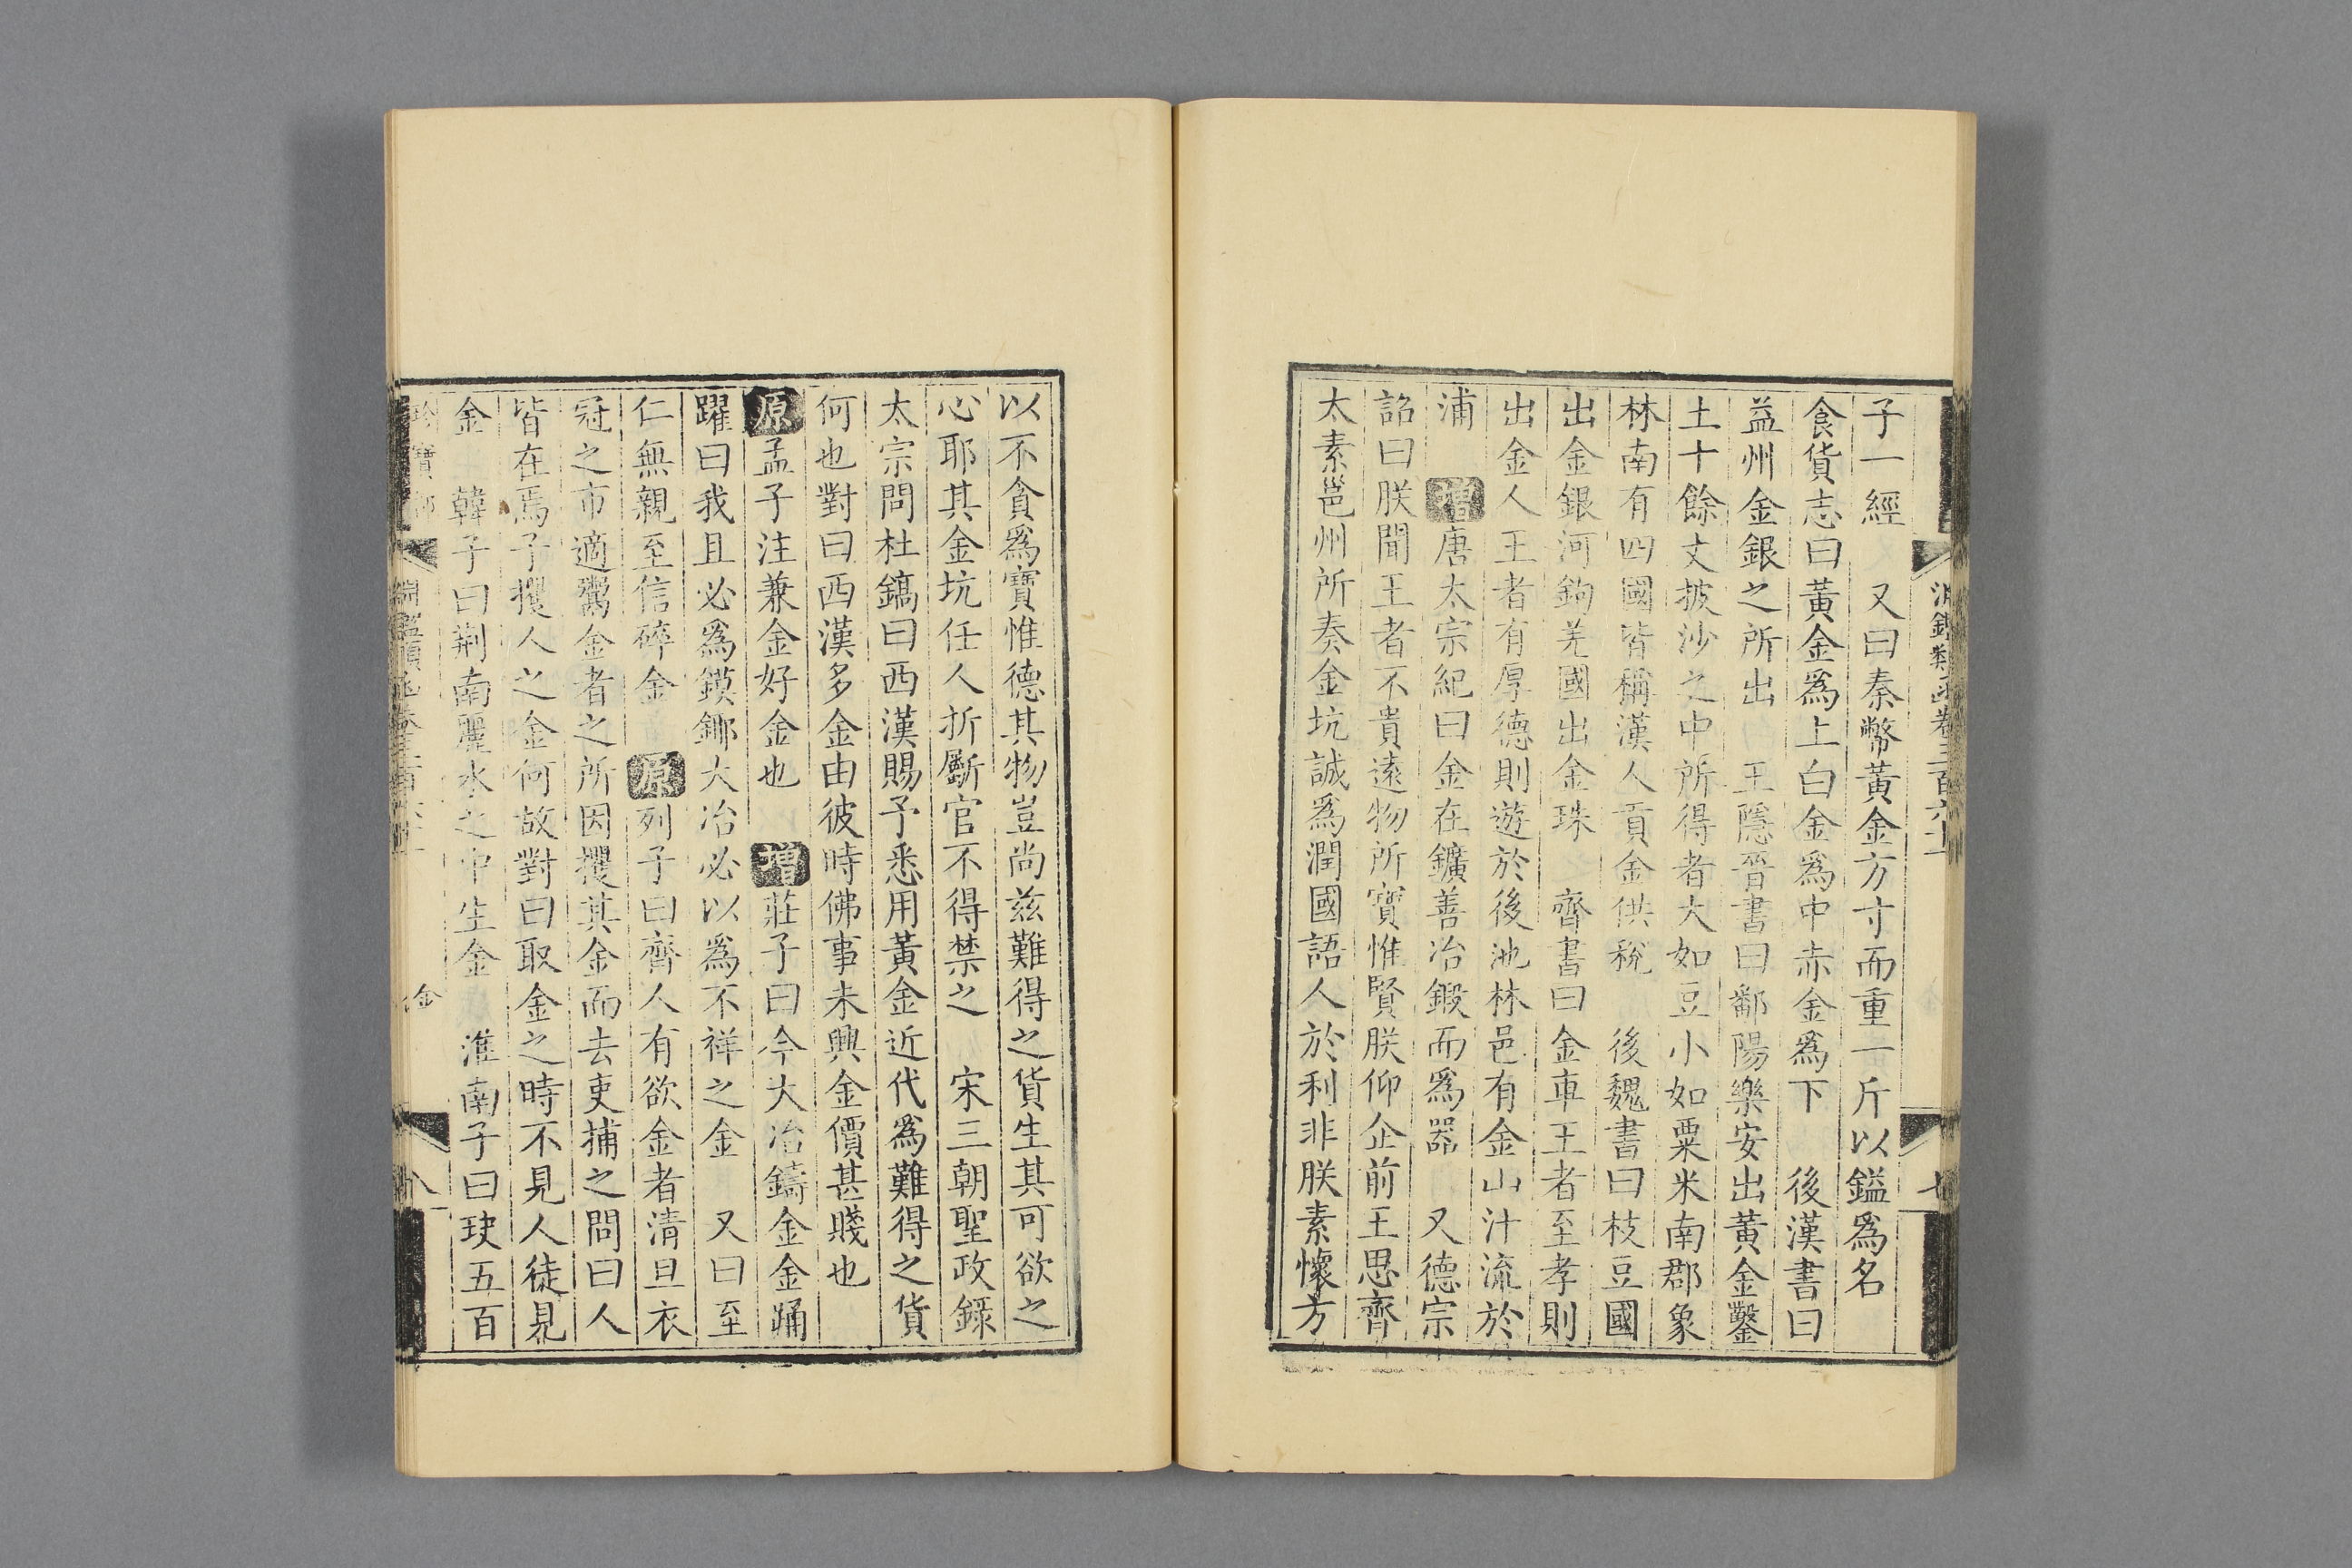 子一經 又曰秦幣黃金方寸而重一斤以鎰爲名
食貨志曰黃金爲上白金爲中赤金爲下 後漢書曰
益州金銀之所出 王隱晉書曰鄱陽樂安出黃金鑿
土十餘丈披沙之中所得者大如豆小如粟米南郡象
林南有四國皆稱漢人貢金供稅 後魏書曰枝豆國
出金銀河鉤羌國出金珠 齊書曰金車王者至孝則
出金人王者有厚德則遊於後池林邑有金山汁流於
浦 增唐太宗紀曰金在鑛善冶鍛而爲器 又德宗
詔曰朕聞王者不貴遠物所寶惟賢朕仰企前王思齊
太素邕州所奏金坑誠爲潤國語人於利非朕素懷方
以不貪爲寶惟德其物豈尚茲難得之貨生其可欲之
心耶其金坑任人折斸官不得禁之 宋三朝聖政錄
太宗問杜鎬曰西漢賜予悉用黃金近代爲難得之貨
何也對曰西漢多金由彼時佛事未興金價甚賤也
原孟子注兼金好金也 增莊子曰今大冶鑄金金踊
躍曰我且必爲鏌鋣大冶必以爲不祥之金 又曰至
仁無親至信碎金 原列子曰齊人有欲金者清旦衣
冠之市適鬻金者之所因攫其金而去吏捕之問曰人
皆在焉子攫人之金何故對曰取金之時不見人徒見
金 韓子曰荆南麗水之中生金 淮南子曰玦五百
珍寶部 淵鑑類函卷三百六十一 金 八